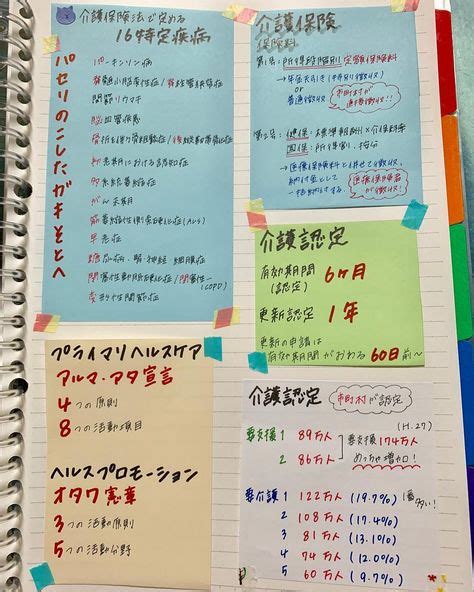 介護保険法で定める
16特定疾病
パセリのこしたガキそとへ
パーキンソン病
脊髄小脳変性症/脊柱管狭窄症
関節リウマチ
脳血管疾患
骨折を伴う骨粗鬆症/後縦靭帯骨化症
初老期における認知症
多系統萎縮症
がん末期
筋萎縮性側索硬化症(ALS)
早老症
糖尿病-腎・神経・網膜症
閉塞性動脈硬化症/閉塞性〜
(COPD)
変形性関節症
介護保険
保険料
第1号:所得段階別定額保険料
→年金天引き(特別徴収)
or
普通徴収
市町村が
直接徴収!!
第2号:健保:標準報酬×介護保険料率
国保:所得割、按分
→医療保険料と併せて徴収
納付金として
一括納付する。
医療保険者
が徴収
介護認定
有効期間 6ヶ月
(認定)
更新認定 1年
更新の申請は
有効期間がおわる 60日前〜
プライマリヘルスケア
アルマ・アタ宣言
4つの原則
8つの活動項目
ヘルスプロモーション
オタワ憲章
3つの活動原則
5つの活動分野
介護認定 市町村が認定
(H.27)
要支援1 89万人
2 86万人
要支援174万人
めっちゃ増加!
要介護1 122万人 (19.7%) 1番多い!
2 108万人 (17.4%)
3 81万人 (13.1%)
4 74万人 (12.0%)
5 60万人 (9.7%)